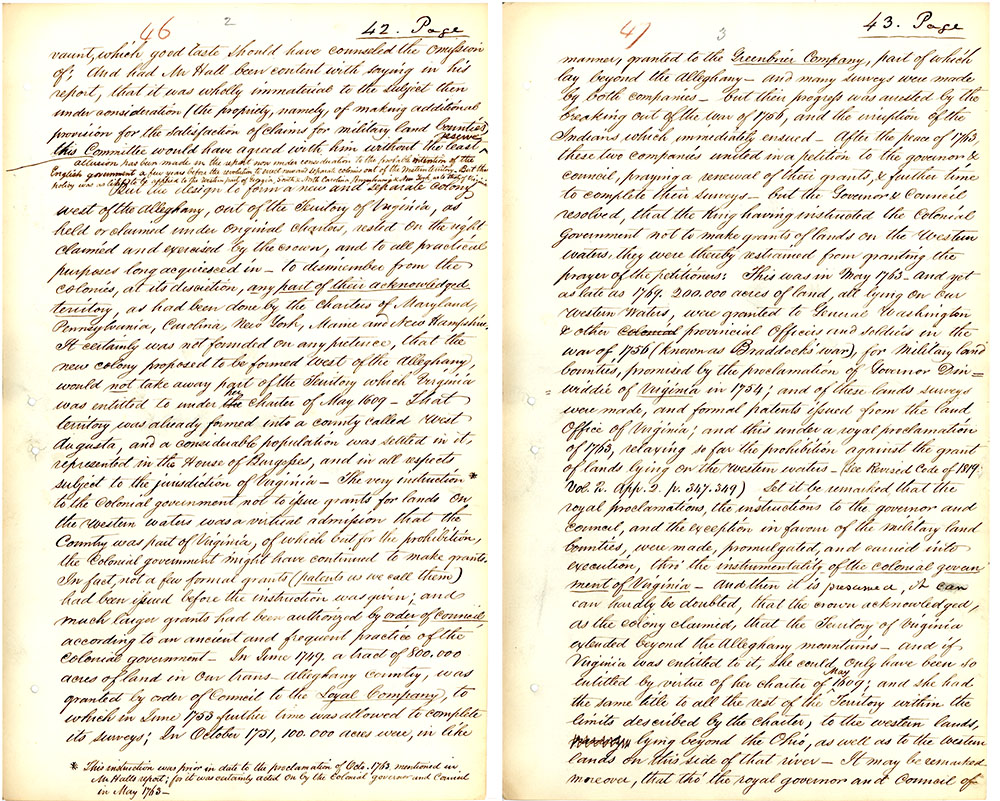 46
2
42. Page
vaunt, which good taste should have counseled the omission
of; And had Mr Hall been content with saying in his
report, that it was wholly immaterial to the subject then
under consideration (the propriety, namely, of making additional
provision for the satisfaction of claims for military land bounties)
this Committee would have agreed with him without the least
reserve
allusion has been made in the report now under consideration to the probable intention of the
English government a few years before the revolution to erect new and separate colonies out of the western territory. But this
policy was as likely to be applied to the western part of Georgia, South & North Carolina, Pennsylvania & New York, as to that of Virginia
But the design to form a new and separate colony
west of the Alleghany, out of the Territory of Virginia, as
held or claimed under original charters, rested on the right
claimed and exercised by the crown, and to all practical
purposes long acquiesced in – to dismember from the
colonies, at its discretion, any part of their acknowledged
territory, as had been done by the charters of Maryland,
Pennsylvania, Carolina, New York, Maine and New Hampshire.
It certainly was not founded on any pretence, that the
new colony proposed to be formed west of the Alleghany,
would not take away part of the Territory which Virginia
was entitled to under her the charter of May 1609 – That
territory was already formed into a county called West
Augusta, and a considerable population was settled in it,
represented in the House of Burgesses, and in all respects
subject to the jurisdiction of Virginia – The very instruction *
to the Colonial government not to issue grants for lands on
the western waters was a virtual admission that the
Country was part of Virginia, of which but for the prohibition,
the Colonial government might have continued to make grants.
In fact, not a few formal grants (patents as we call them)
had been issued before the instruction was given; and
much larger grants had been authorized by order of Council,
according to an ancient and frequent practice of the
Colonial government – In June 1749, a tract of 800.000
acres of land in our trans-alleghany country, was
granted by order of Council to the Loyal Company, to
which in June 1753 further time was allowed to complete
its surveys; In October 1751, 100.000 acres were, in like
* This instruction was prior in date to the proclamation of Octo. 1763 mentioned in
Mr Halls report; for it was certainly acted on by the Colonial governor and Council
in May 1763 –
47
3
43. Page
manner, granted to the Greenbrier Company, part of which
lay beyond the Alleghany – and many surveys were made
by both companies – but their progress was arrested by the
breaking out of the war of 1756, and the irruption of the
Indians which immediately ensued – After the peace of 1763,
these two companies united in a petition to the governor &
council, praying a renewal of their grants, & further time
to complete their surveys – but the Governor & Council
resolved, that the King having instructed the Colonial
Government not to make grants of lands on the Western
waters, they were thereby restrained from granting the
prayer of the petitioners: This was in May 1763 – and yet
as late as 1769. 200.000 acres of land, all lying on our
Western Waters, were granted to General Washington
& other Colonial provincial Officers and soldiers in the
war of 1756 (known as Braddock's war), for Military land
bounties, promised by the proclamation of Governor Din=
=widdie of Virginia in 1754; and of these lands surveys
were made, and formal patents issued from the land
Office of Virginia; and this under a royal proclamation
of 1763, relaxing so far the prohibition against the grant
of lands lying on the western waters – (See Revised Code of 1819.
Vol. 2. App. 2. p. 347.349) Let it be remarked, that the
royal proclamations, the instructions to the governor and
council, and the exception in favour of the military land
bounties, were made, promulgated, and carried into
execution, thro' the instrumentality of the colonial govern
ment of Virginia – And then it is presumed, it can
can hardly be doubted, that the crown acknowledged,
as the colony claimed, that the Territory of Virginia
extended beyond the Alleghany mountains – and if
Virginia was entitled to it, she could only have been so
entitled by virtue of her charter of May 1609; and she had
the same title to all the rest of the Territory within the
limits described by the Charter, to the western lands,
lying beyond the Ohio, as well as to the western
lands on this side of that river – It may be remarked
moreover, that tho' the royal governor and Council of